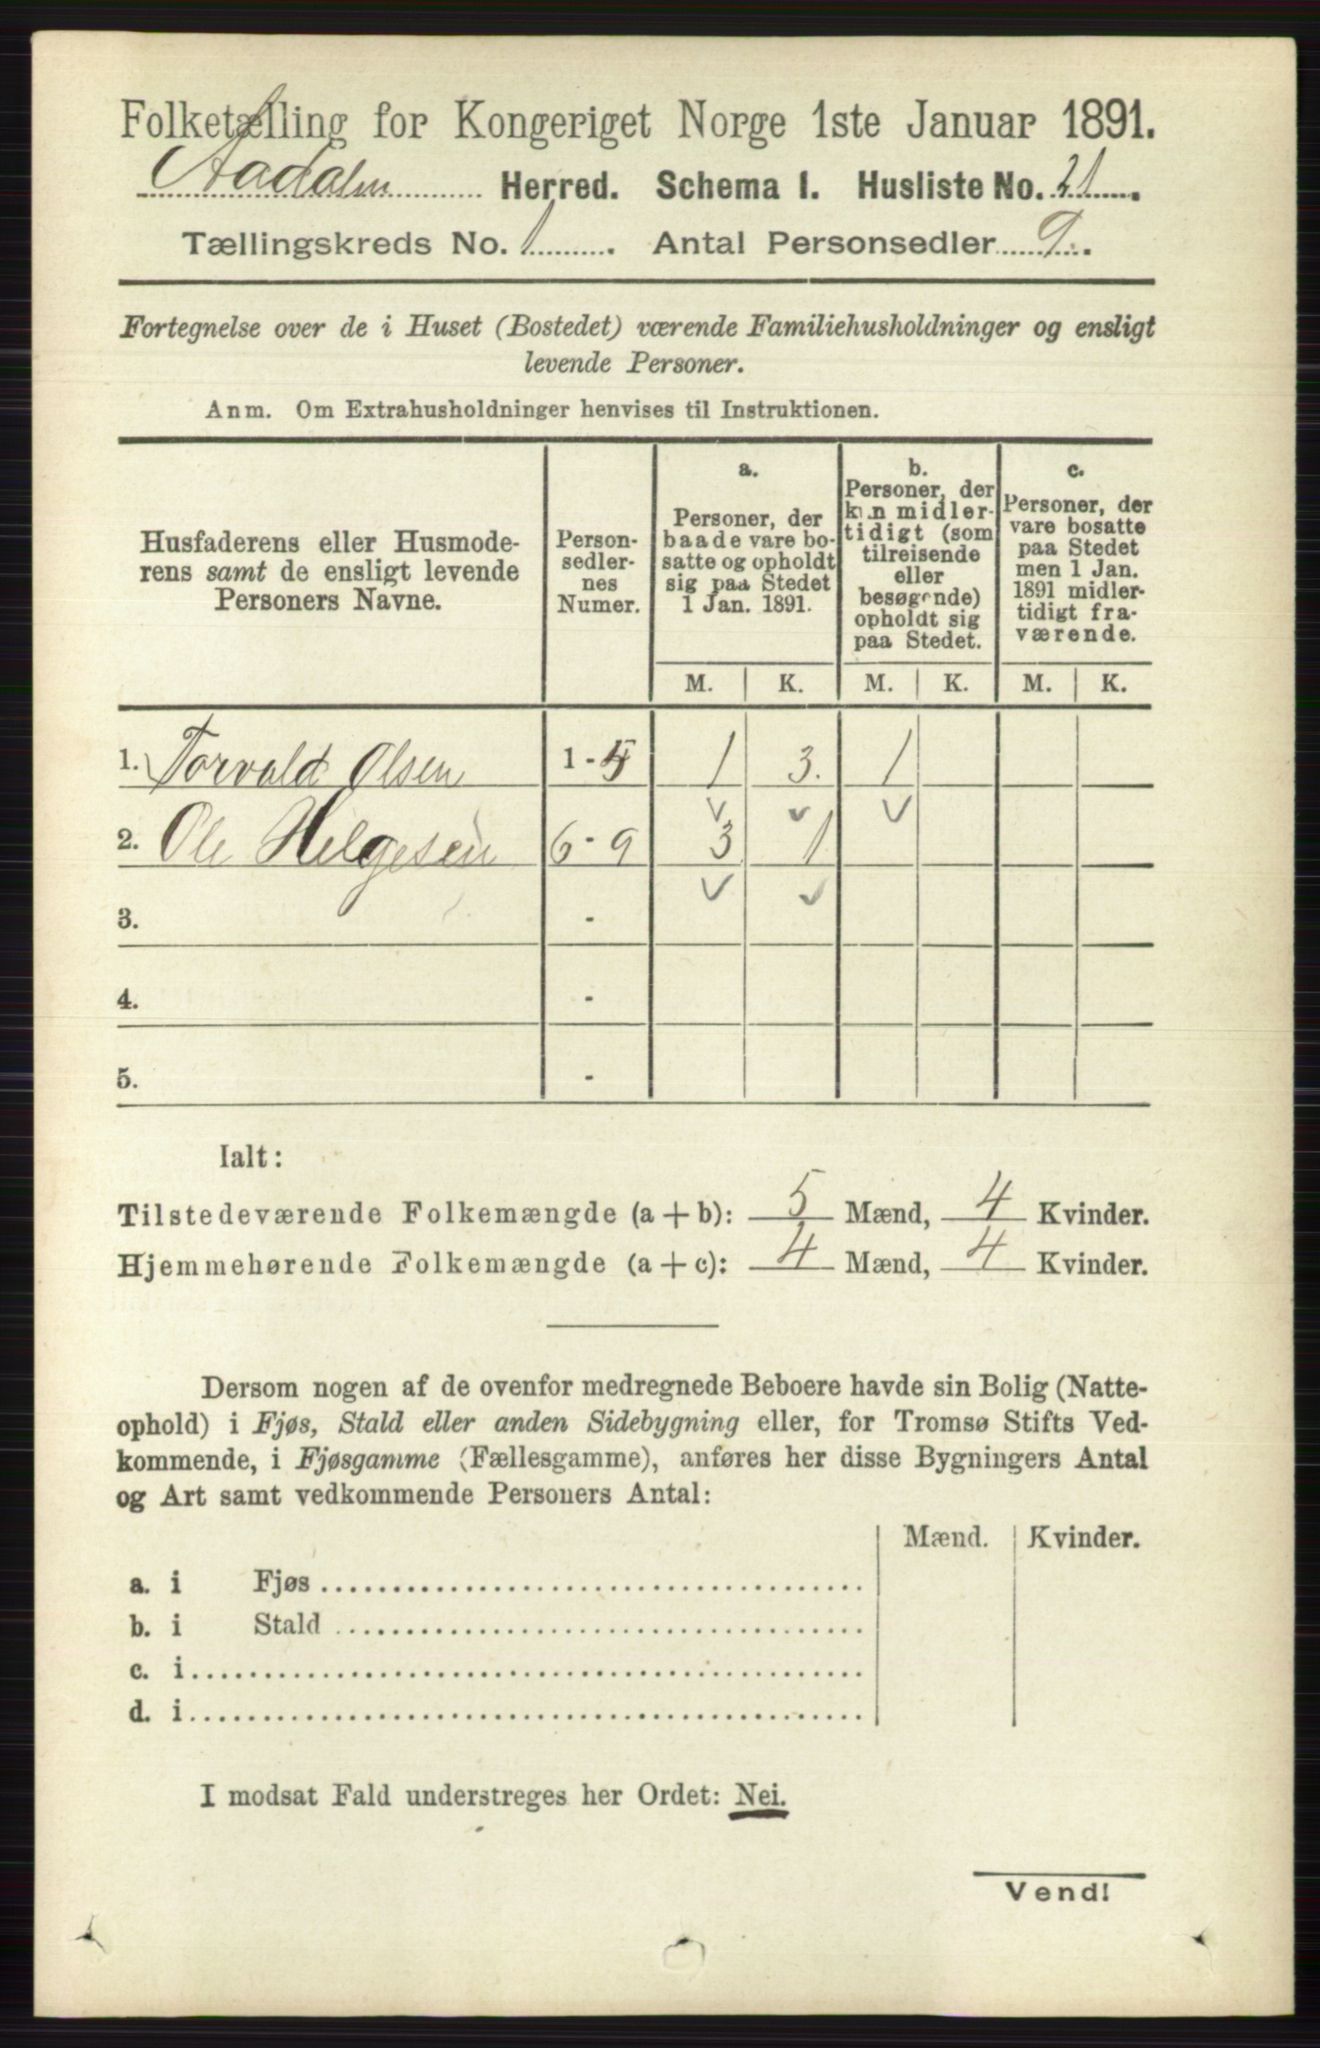 Folketælling for Kongeriget Norge 1ste Januar 1891.
Aadalen Herred. Schema 1. Husliste No. 21.
Tællingskreds No. 1. Antal Personsedler 9.
Fortegnelse over de i Huset (Bostedet) værende Familiehusholdninger og ensligt
levende Personer.
Anm. Om Extrahusholdninger henvises til Instruktionen.
Husfaderens eller Husmode-
rens samt de ensligt levende
Personers Navne.
Person-
sedler-
nes
Numer.
a.
Personer, der
baade vare bo-
satte og opholdt
sig paa Stedet
1 Jan. 1891.
b.
Personer, der
kun midler-
tidigt (som
tilreisende
eller
besøgende)
opholdt sig
paa Stedet.
c.
Personer, der
vare bosatte
paa Stedet
men 1 Jan.
1891 midler-
tidigt fra-
værende.
M. K. M. K. M. K.
1. Torvald Olsen 1 - 5 1 3. 1
2. Ole Helgesen 6 - 9 3 1
3. -
4. -
5. -
Ialt:
Tilstedeværende Folkemængde (a + b): 5 Mænd, 4 Kvinder.
Hjemmehørende Folkemængde (a + c): 4 Mænd, 4 Kvinder.
Dersom nogen af de ovenfor medregnede Beboere havde sin Bolig (Natte-
ophold) i Fjøs, Stald eller anden Sidebygning eller, for Tromsø Stifts Ved-
kommende, i Fjøsgamme (Fællesgamme), anføres her disse Bygningers Antal
og Art samt vedkommende Personers Antal:
Mænd. Kvinder.
a. i Fjøs
b. i Stald
c. i
d. i
I modsat Fald understreges her Ordet: Nei.
Vend!